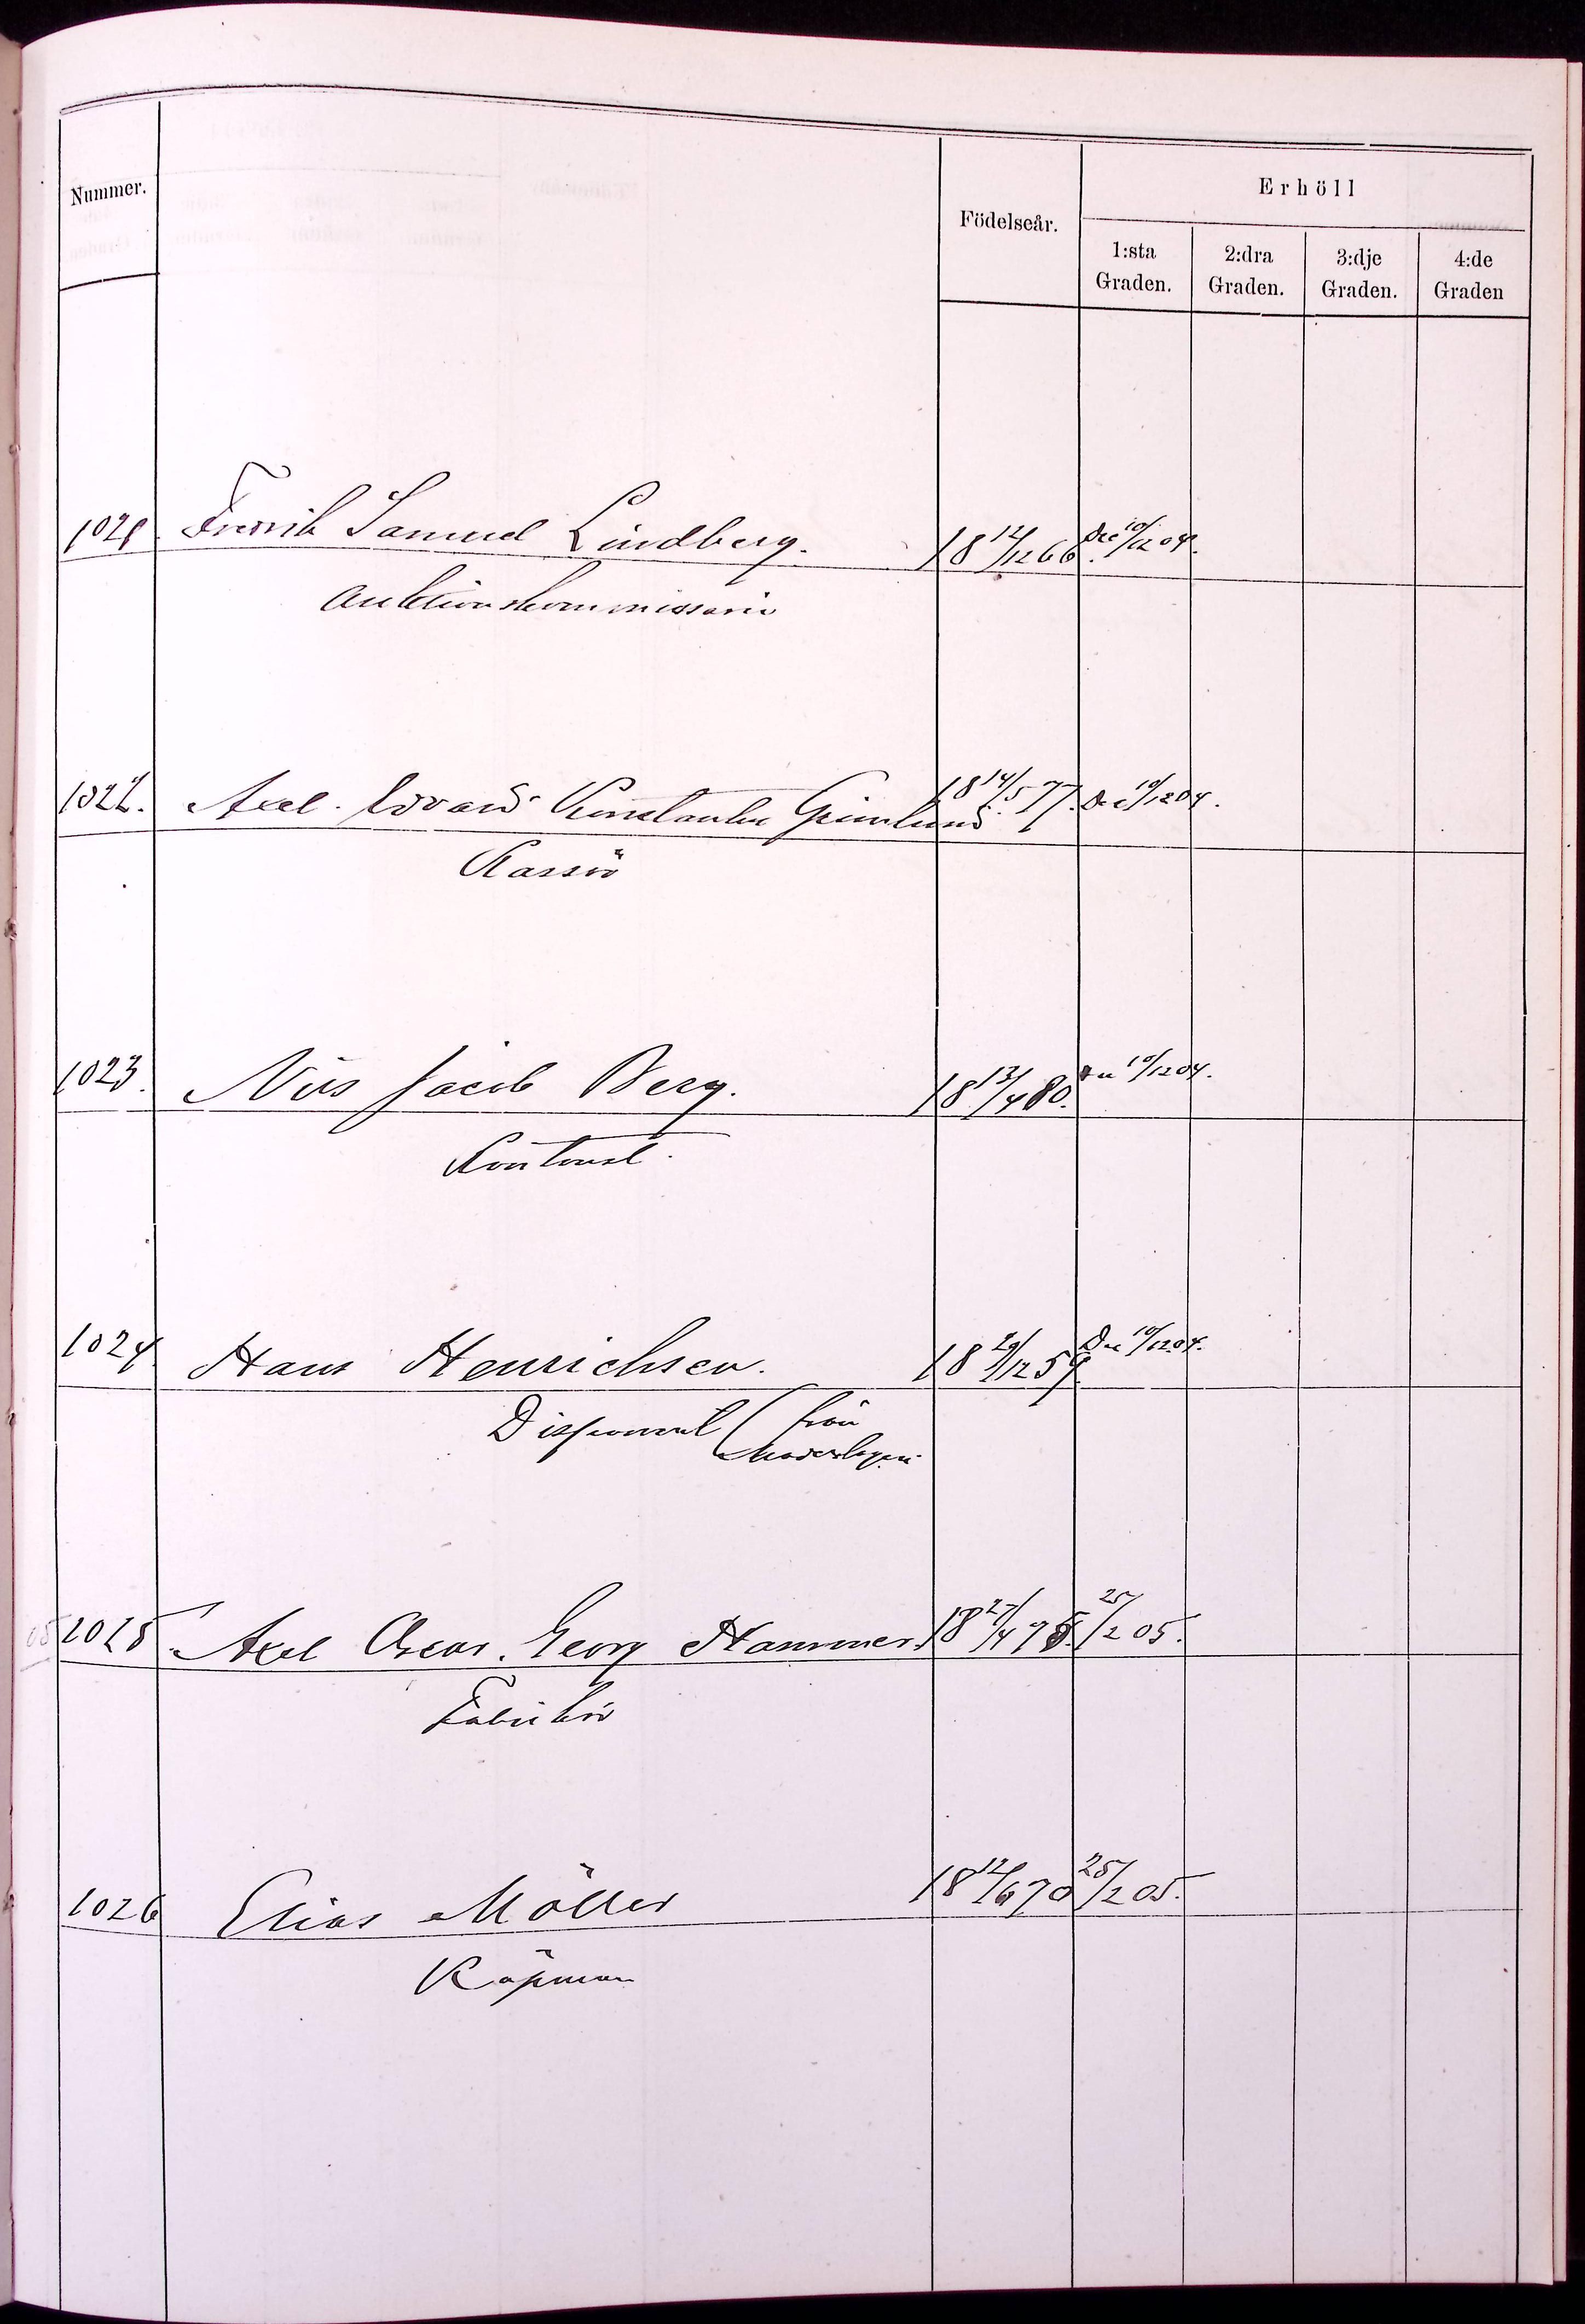 Nummer.
Födelseår.
Erhöll
1:sta Graden.
2:dra Graden.
3:dje Graden.
4:de Graden
1021. Fredrik Samuel Lindberg. 18 12/12 66. Dec 10/12 04.
Auktionskommissarie
1022. Axel Edvard Konstantin Grimlund 18 14/5 77. Dec 10/12 04.
Kassör
1023. Nils Jacob Berg. 18 13/4 80. 10/12 04.
Kontorist.
1024 Hans Henrichsen. 18 29/12 59. Dec 10/12 04.
Disponent (från
1025 Axel Oscar Georg Hammer. 18 27/4 75. 25/2 05.
Fabrikör
1026 Elias Möller 18 12/6 70 25/2 05.
Köpman